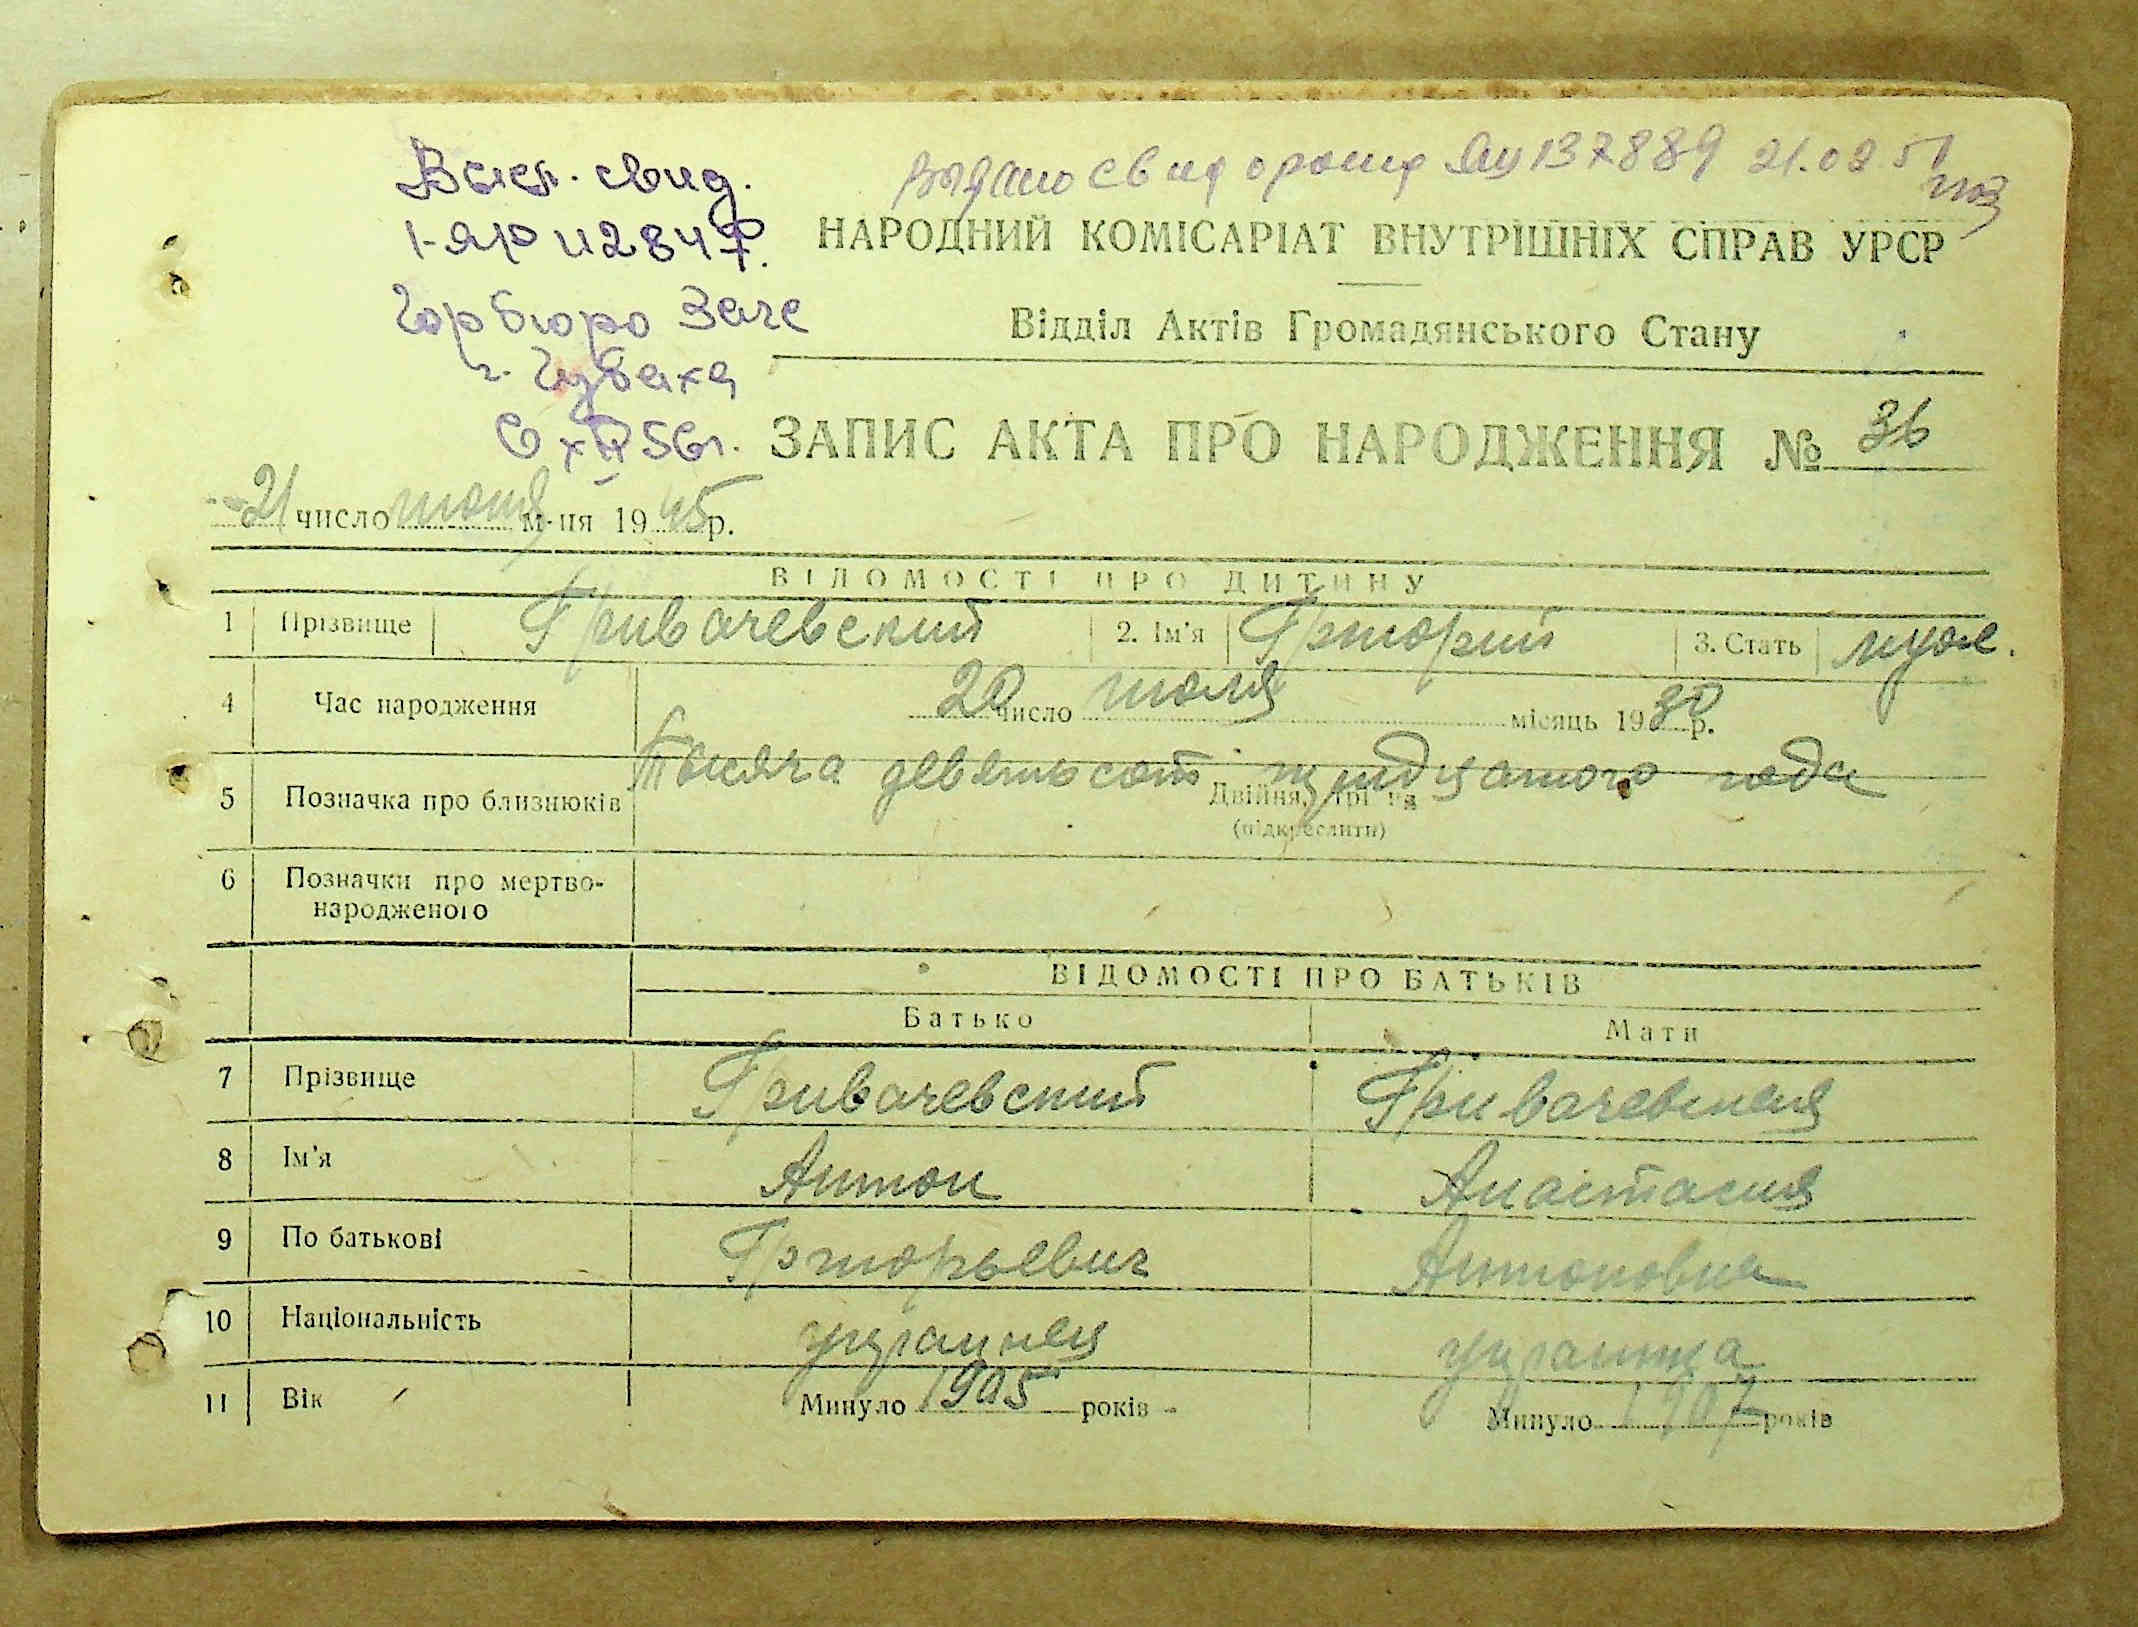 Выдано свид о рожд 137889 21.02 51
Вы. свид.
I-ЯР 112847
Горбюро Загс
г. Губаха
56 г.
НАРОДНИЙ КОМІСАРІАТ ВНУТРІШНІХ СПРАВ УРСР
Відділ Актів Громадянського Стану
ЗАПИС АКТА ПРО НАРОДЖЕННЯ № 36
21 число м-ця 1945 р.
ВІДОМОСТІ ПРО ДИТИНУ
1 Прізвище Гривачевский 2. Ім'я Григорий 3. Стать муж.
4 Час народження 20 число июля місяць 1930 р.
Тысяча девятьсот тридцатого года
5 Позначка про близнюків Двійня, трійня
(підкреслити)
6 Позначки про мертво-
народженого
ВІДОМОСТІ ПРО БАТЬКІВ
Батько Мати
7 Прізвище Гривачевский Гривачевская
8 Ім'я Антон Анастасия
9 По батькові Григорьевич Антоновна
10 Національність украинец украинка
11 Вік Минуло 1905 років Минуло 1907 років